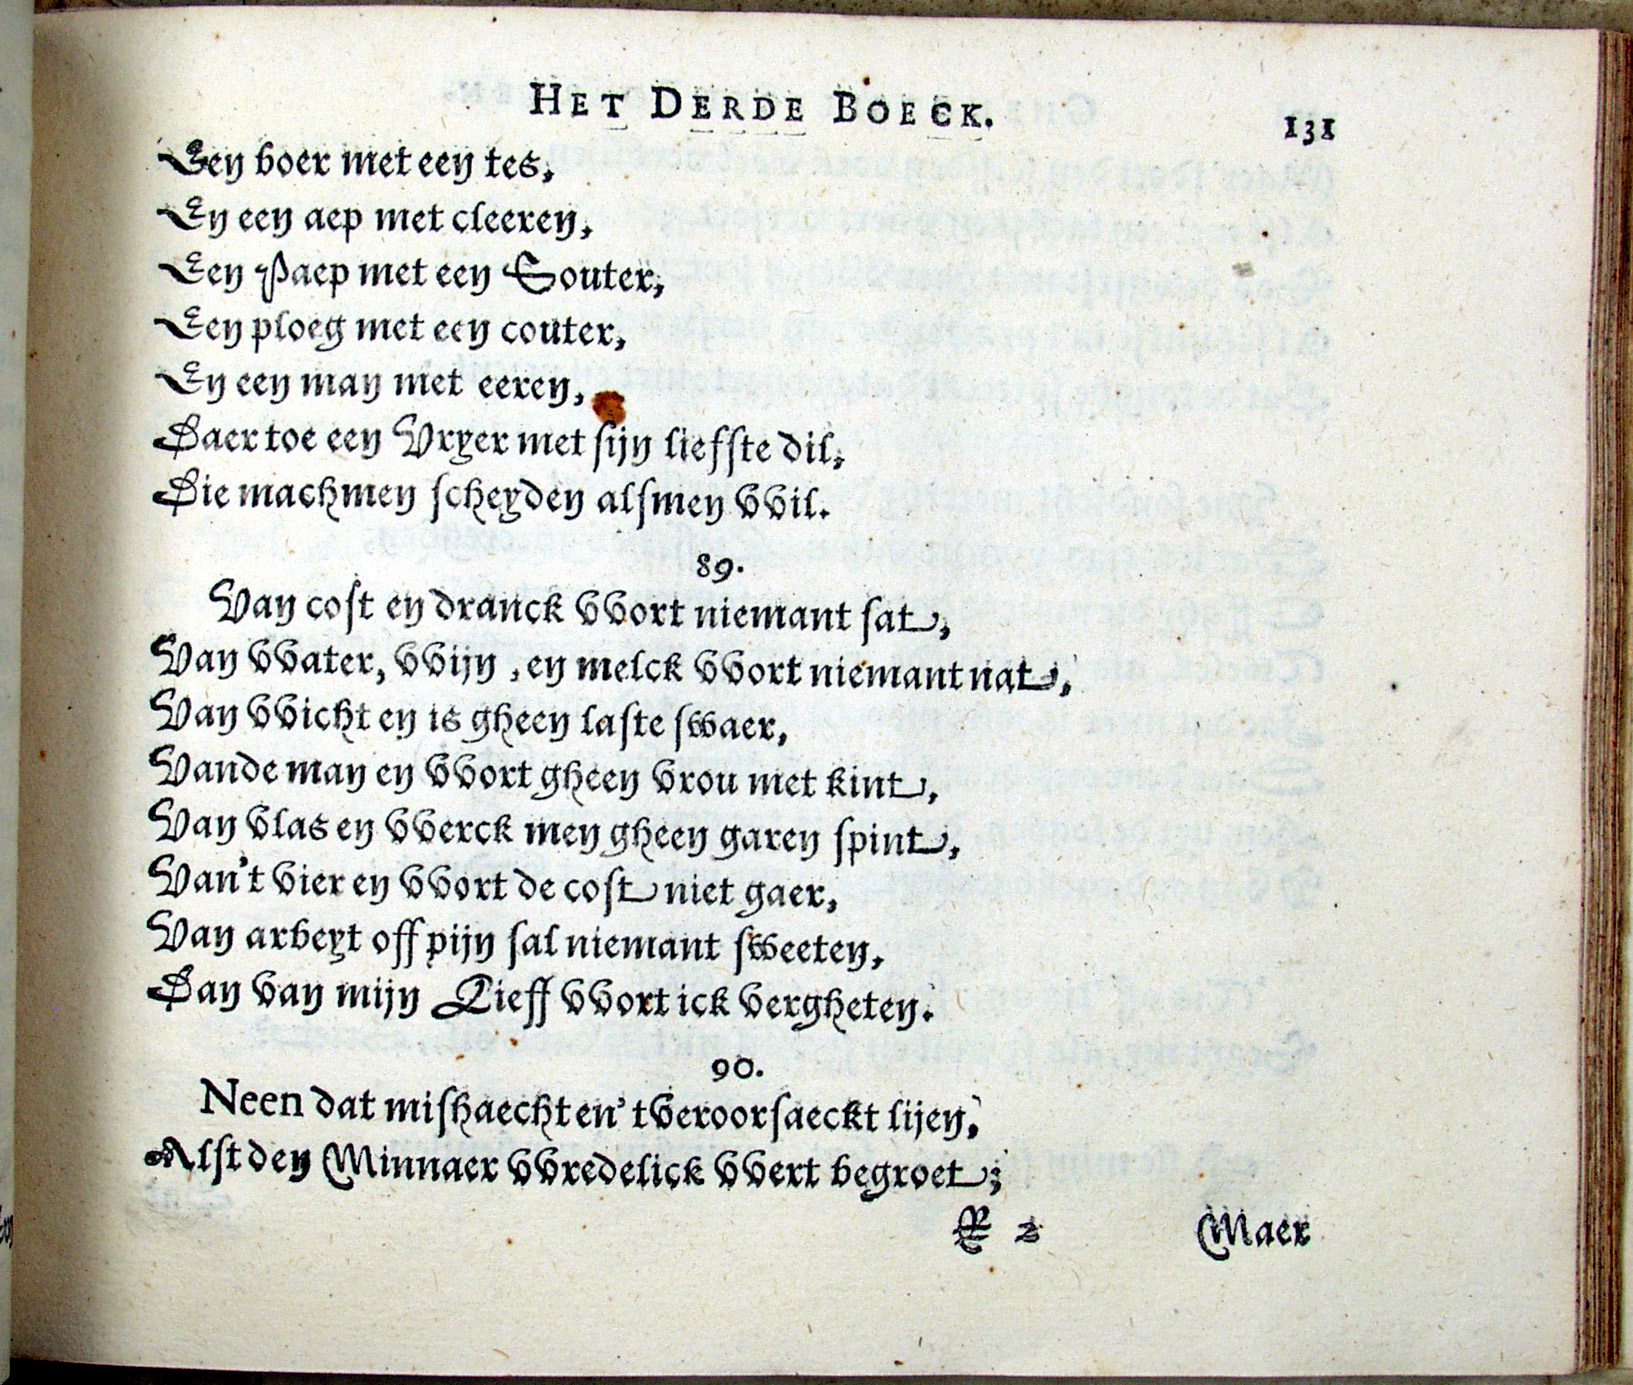 HET DERDE BOECK. 131
Een boer met een tes,
En een aep met cleeren,
Een Paep met een Souter,
Een ploeg met een couter,
En een man met eeren,
Daer toe een Vryer met sijn liefste dil,
Die machmen scheyden alsmen vvil.
89.
Van cost en dranck vvort niemant sat,
Van vvater, vvijn, en melck vvort niemant nat,
Van vvicht en is gheen laste swaer,
Vande man en vvort gheen vrou met kint,
Van vlas en vverck men gheen garen spint,
Van't vier en vvort de cost niet gaer,
Van arbeyt off pijn sal niemant sweeten,
Dan van mijn Lieff vvort ick vergheten.
90.
Neen dat mishaecht en't veroorsaeckt lijen,
Alst den Minnaer vvredelick vvert begroet;
R 2 Maer